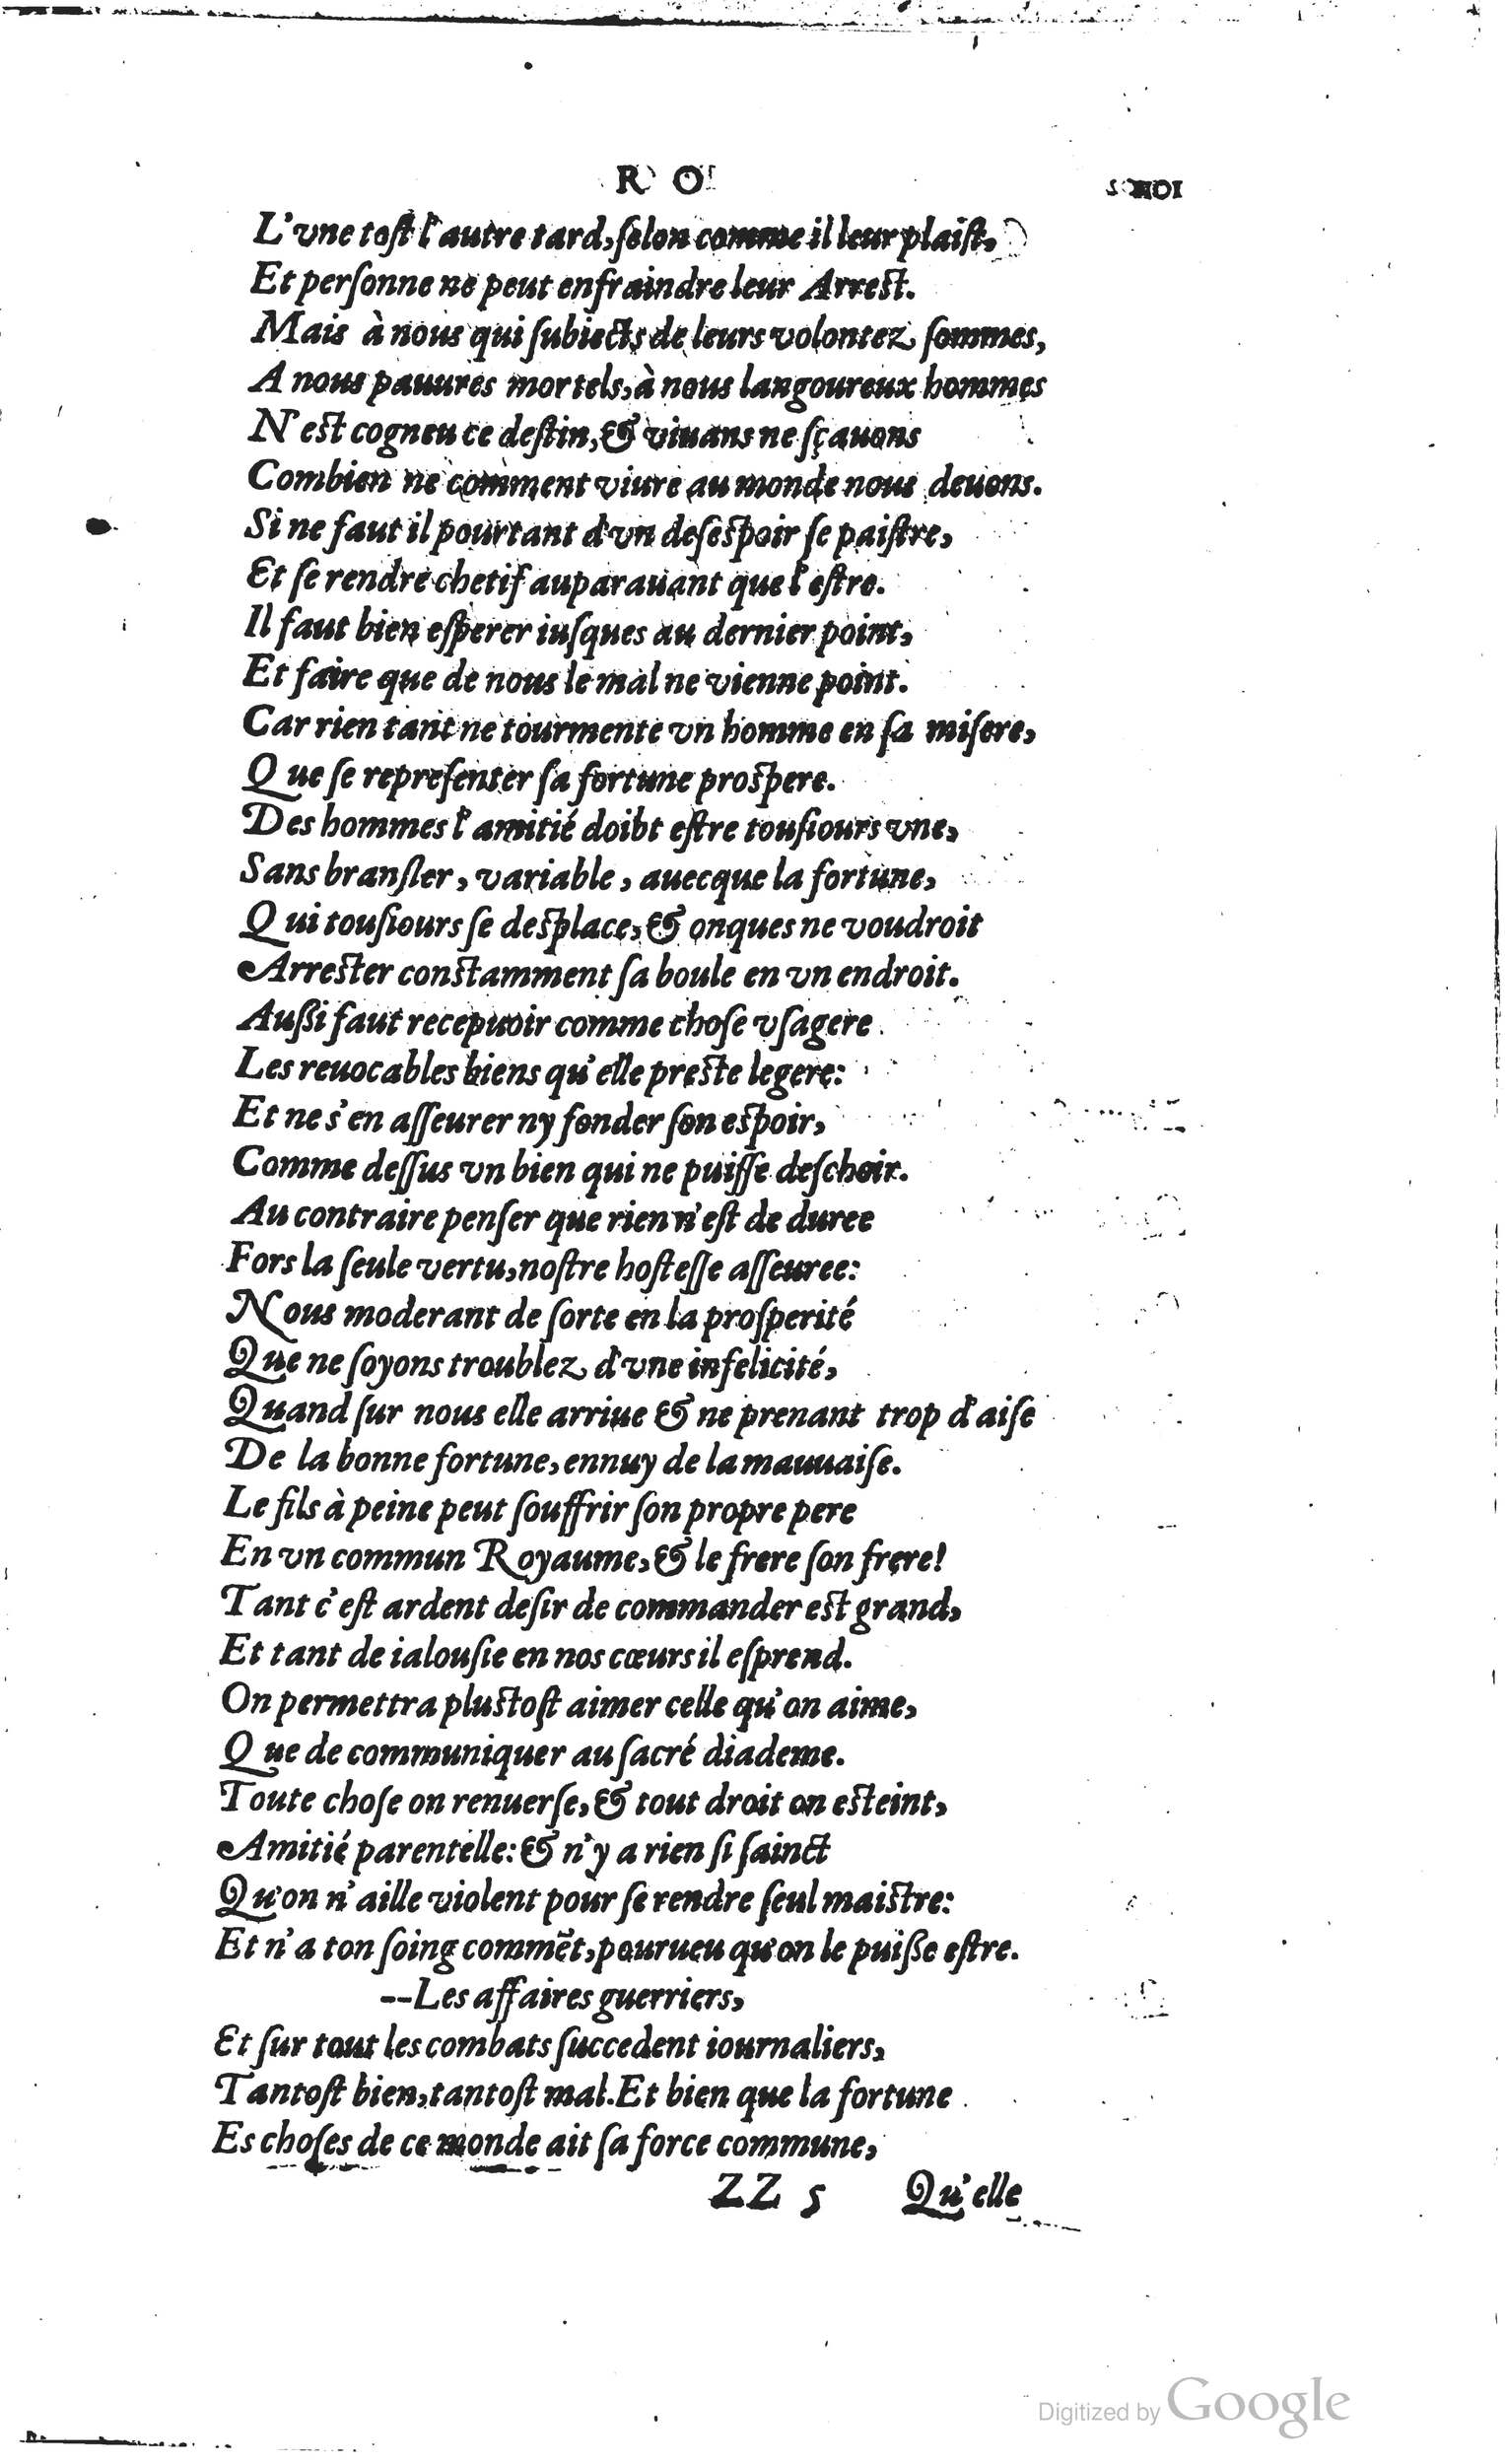 R O
L'vne tost l'autre tard, selon comme il leur plaist,
Et personne ne peut enfraindre leur Arrest.
Mais à nous qui subiects de leurs volontez sommes,
A nous pauures mortels, à nous langoureux hommes
N'est cogneu ce destin, & viuans ne sçauons
Combien ne comment viure au monde nous deuons.
Si ne faut il pourtant d'vn desespoir se paistre,
Et se rendre chetif auparauant que l'estre.
Il faut bien esperer iusques au dernier point,
Et faire que de nous le mal ne vienne point.
Car rien tant ne tourmente vn homme en sa misere,
Que se representer sa fortune prospere.
Des hommes l'amitié doibt estre tousiours vne,
Sans bransler, variable, auecque la fortune,
Qui tousiours se desplace, & onques ne voudroit
Arrester constamment sa boule en vn endroit.
Aussi faut recepuoir comme chose vsagere
Les reuocables biens qu'elle preste legere:
Et ne s'en asseurer ny fonder son espoir,
Comme dessus vn bien qui ne puisse deschoir.
Au contraire penser que rien n'est de duree
Fors la seule vertu, nostre hostesse asseuree:
Nous moderant de sorte en la prosperité
Que ne soyons troublez d'vne infelicité,
Quand sur nous elle arriue & ne prenant trop d'aise
De la bonne fortune, ennuy de la mauuaise.
Le fils à peine peut souffrir son propre pere
En vn commun Royaume, & le frere son frere!
Tant c'est ardent desir de commander est grand,
Et tant de ialousie en nos cœurs il esprend.
On permettra plustost aimer celle qu'on aime,
Que de communiquer au sacré diademe.
Toute chose on renuerse, & tout droit on esteint,
Amitié parentelle: & n'y a rien si sainct
Qu'on n'aille violent pour se rendre seul maistre:
Et n'a ton soing commẽt, pourueu qu'on le puisse estre.
--Les affaires guerriers,
Et sur tout les combats succedent iournaliers,
Tantost bien, tantost mal. Et bien que la fortune
Es choses de ce monde ait sa force commune,
ZZ 5 Qu'elle
Digitized by Google